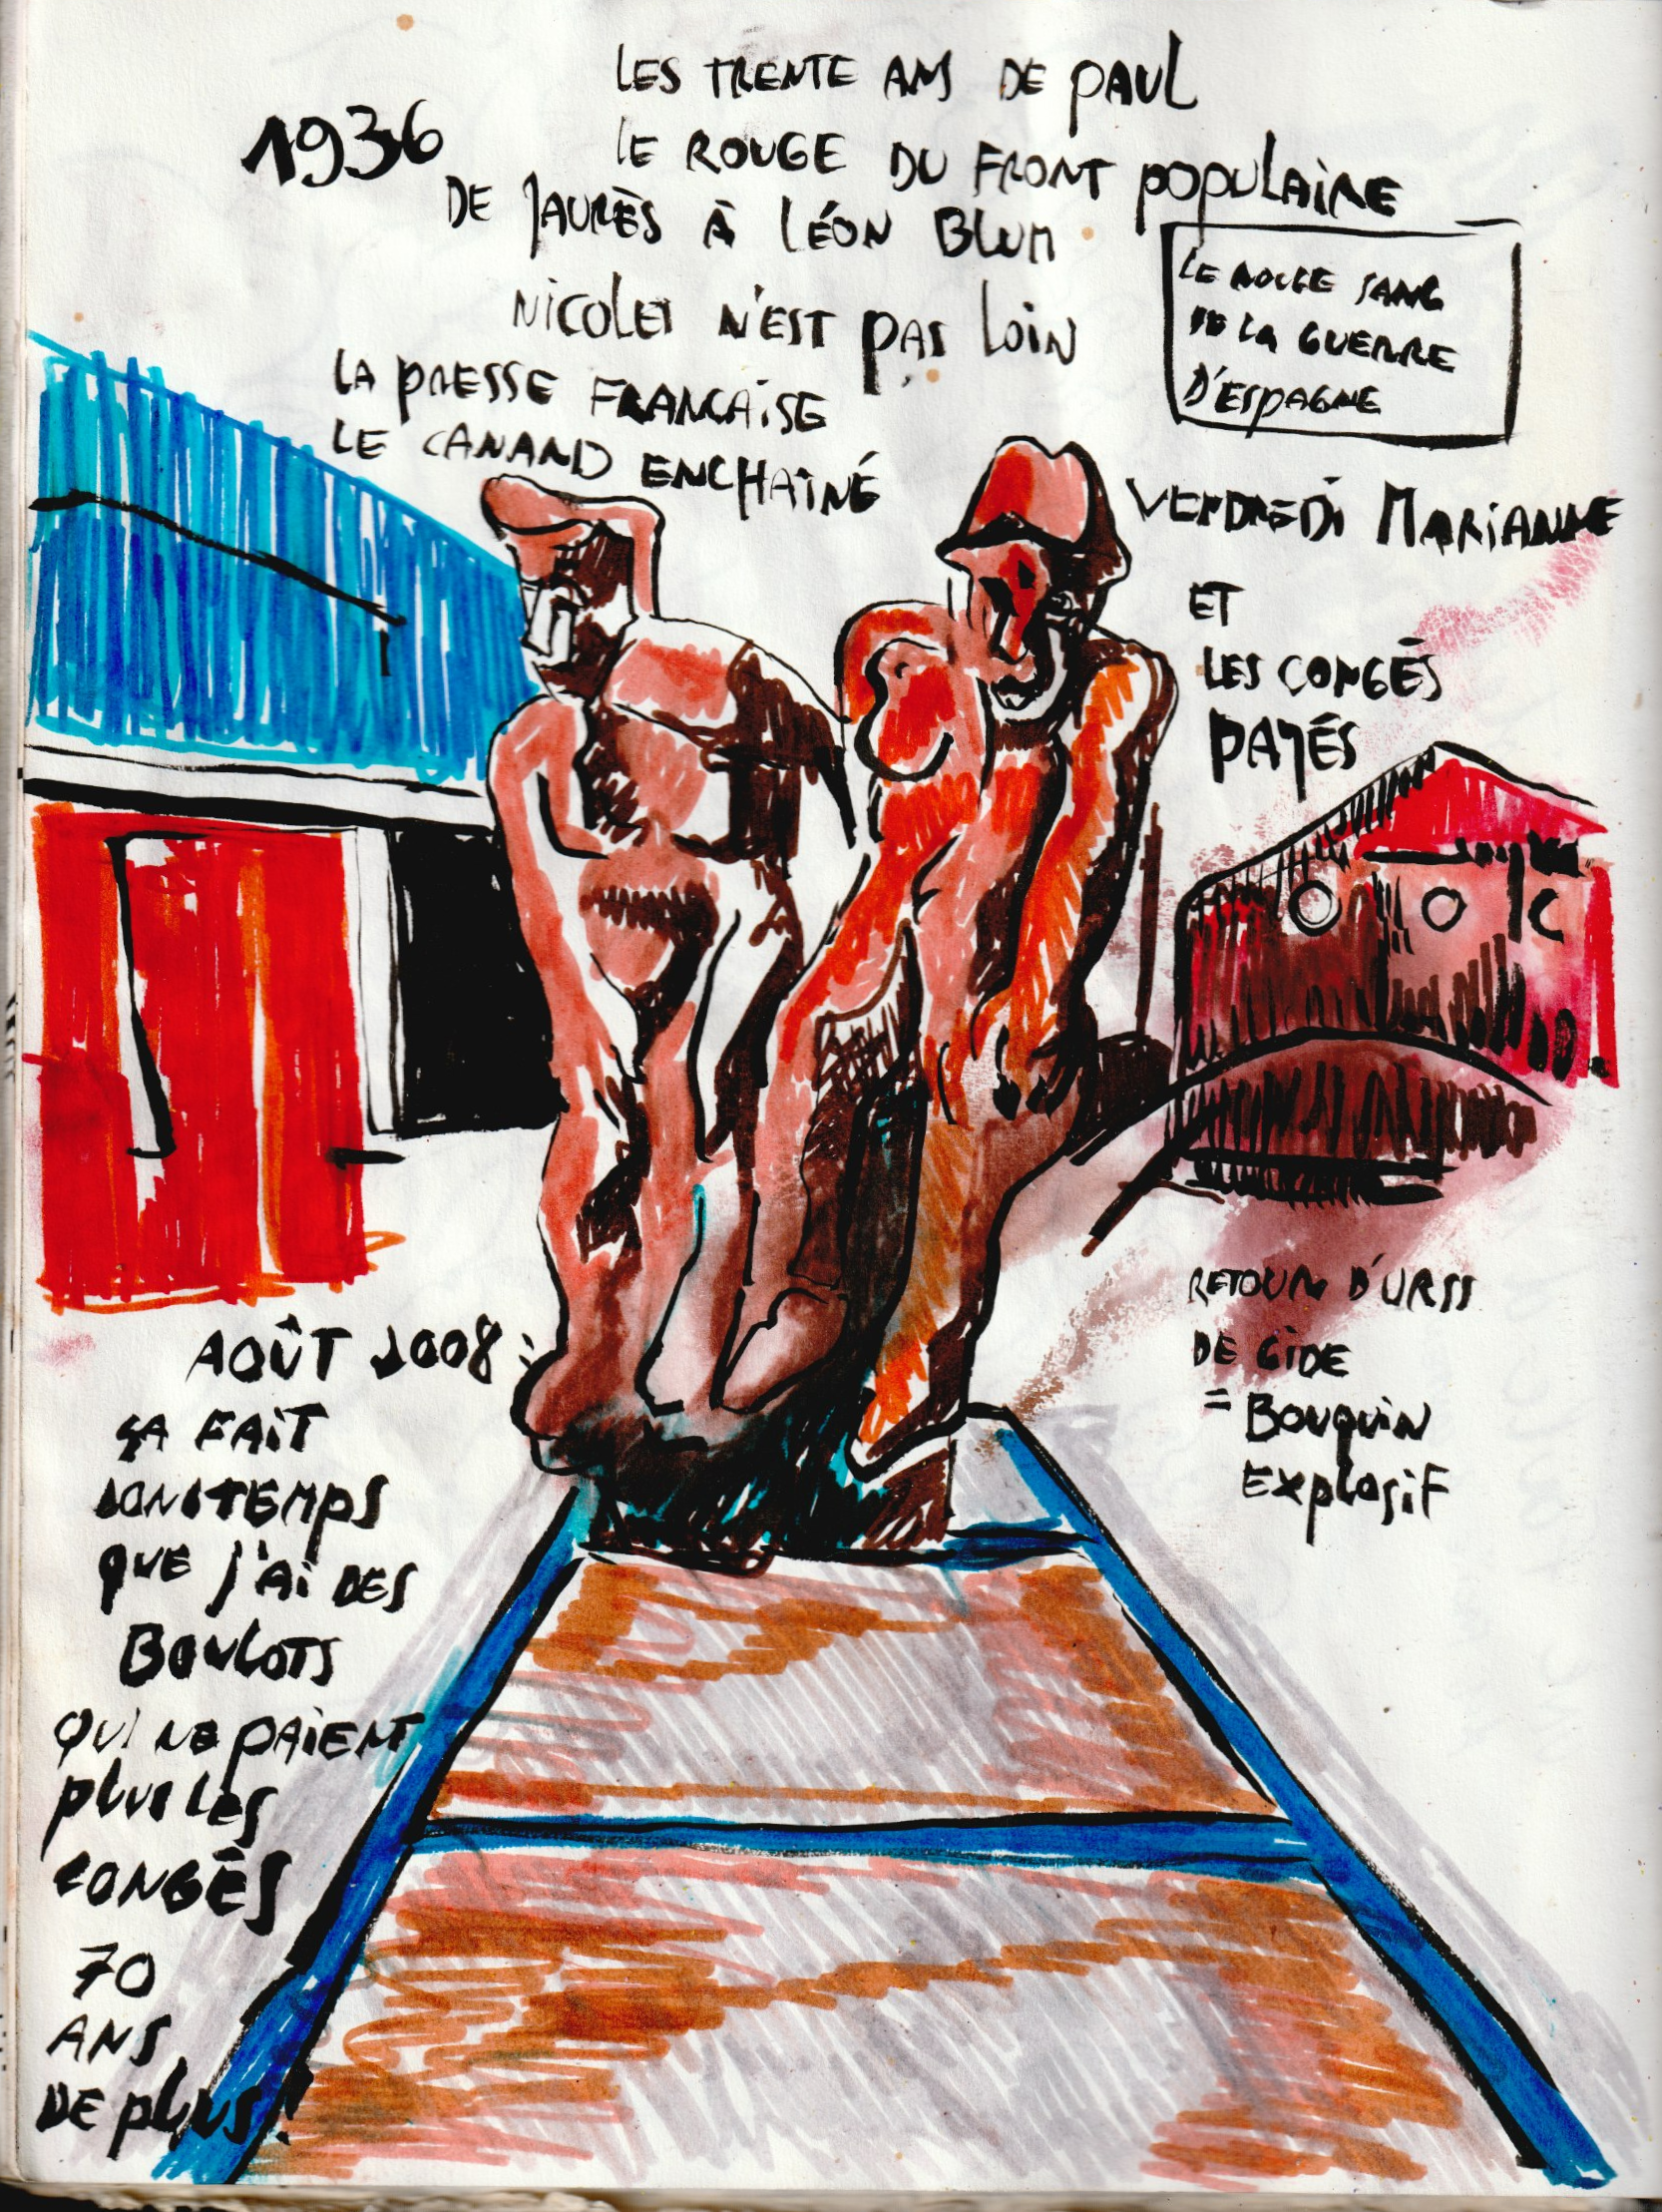 LES TRENTE ANS DE PAUL
1936
LE ROUGE DU FRONT POPULAIRE
DE JAURÈS À LÉON BLUM
NICOLET N'EST PAS LOIN
LE ROUGE SANG
DE LA GUERRE
D'ESPAGNE
LA PRESSE FRANCAISE
LE CANARD ENCHAINÉ
VENDREDI MARIANNE
ET
LES CONGÉS
PAYÉS
RETOUR D'URSS
DE GIDE
= BOUQUIN
EXPLOSIF
AOÛT 2008 :
ÇA FAIT
LONGTEMPS
QUE J'AI DES
BOULOTS
QUI NE PAIENT
PLUS LES
CONGÉS
70
ANS
DE PLUS !